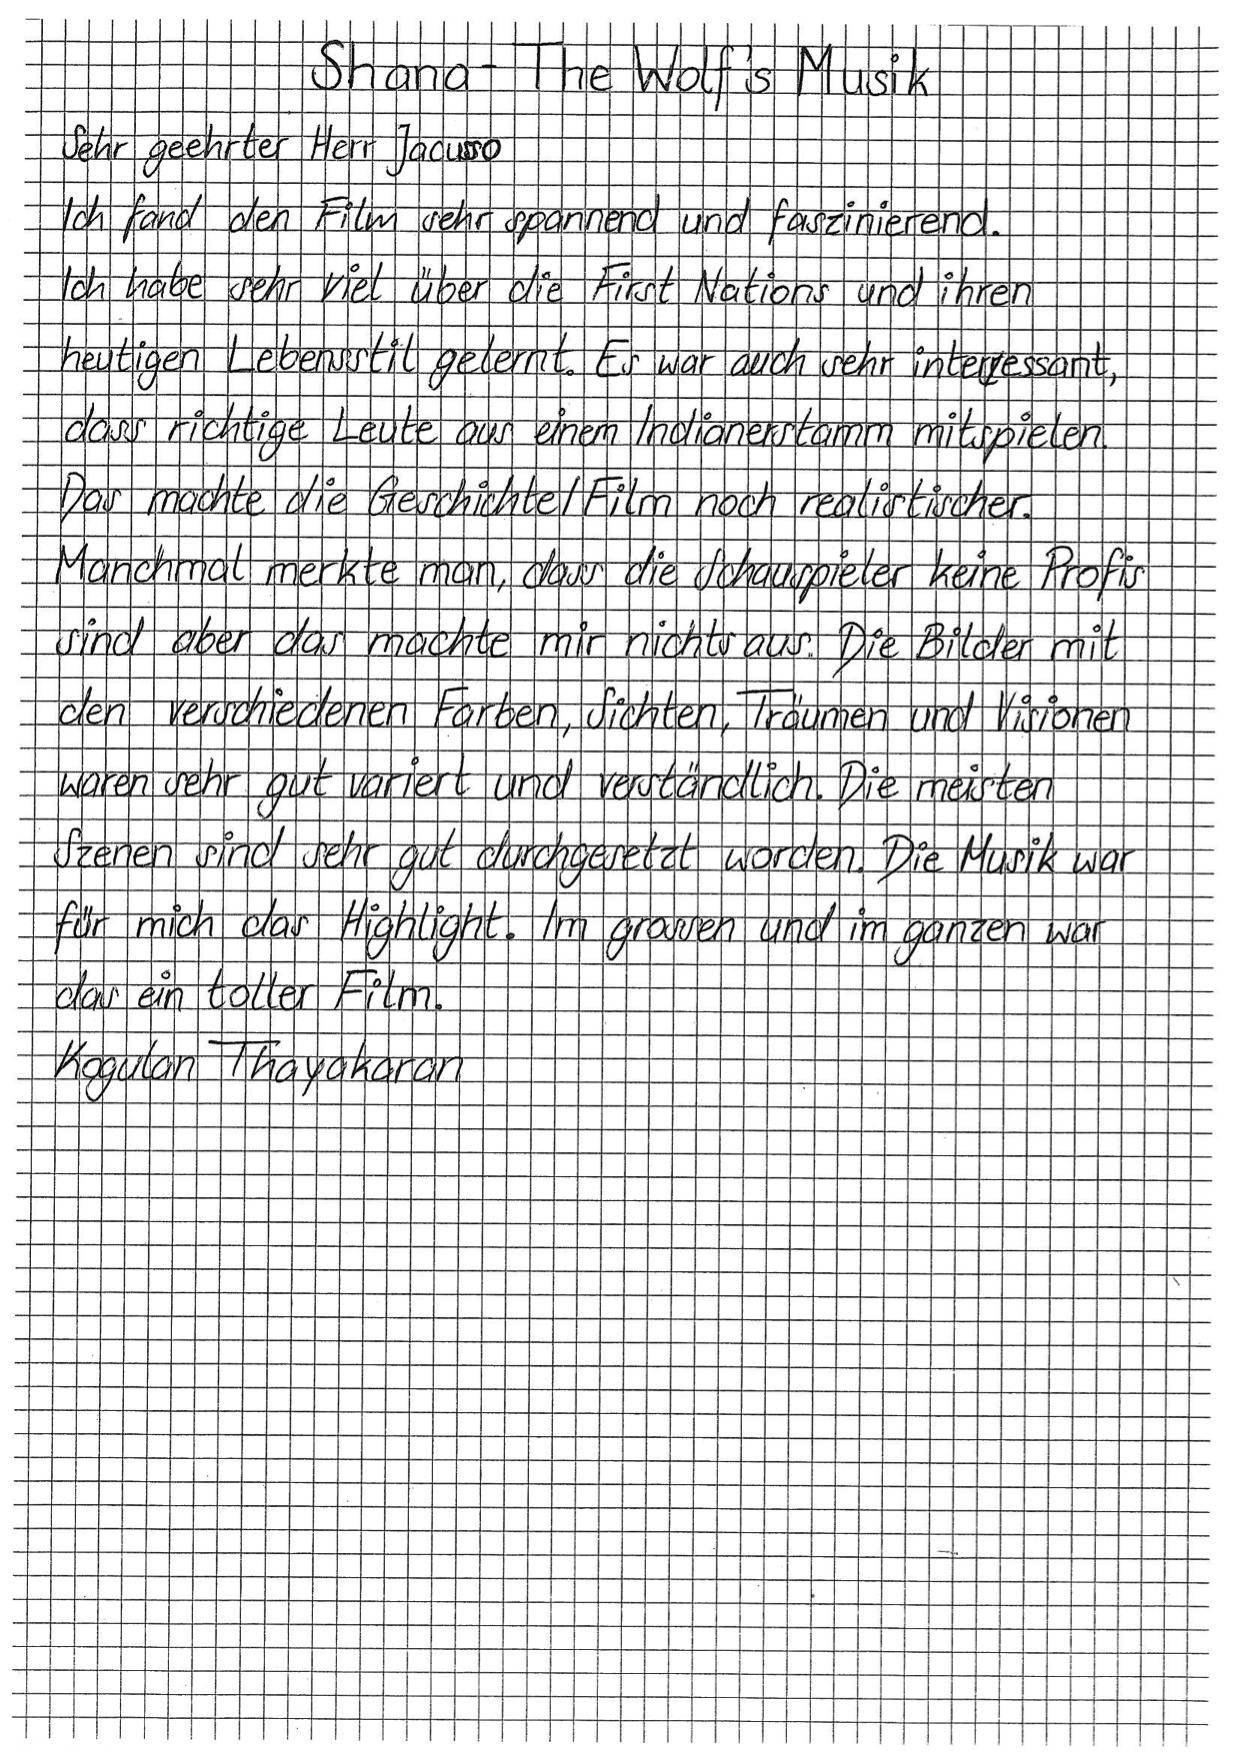 Shana - The Wolf's Musik
Sehr geehrter Herr Jacusso
Ich fand den Film sehr spannend und faszinierend.
Ich habe sehr viel über die First Nations und ihren
heutigen Lebensstil gelernt. Es war auch sehr interressant,
dass richtige Leute aus einem Indianerstamm mitspielen.
Das machte die Geschichte/Film noch realistischer.
Manchmal merkte man, dass die Schauspieler keine Profis
sind aber das machte mir nichts aus. Die Bilder mit
den verschiedenen Farben, Sichten, Träumen und Visionen
waren sehr gut variert und verständlich. Die meisten
Szenen sind sehr gut durchgesetzt worden. Die Musik war
für mich das Highlight. Im grossen und im ganzen war
das ein toller Film.
Kogulan Thayakaran